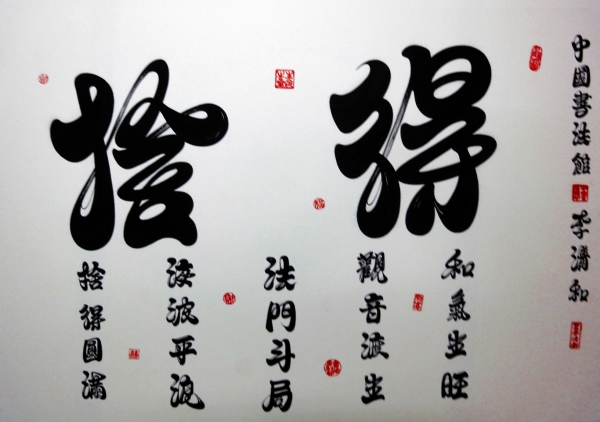 中國書法館 李清和
得捨
和氣生旺
觀音渡生
法門斗局
波平浪
捨得圓滿